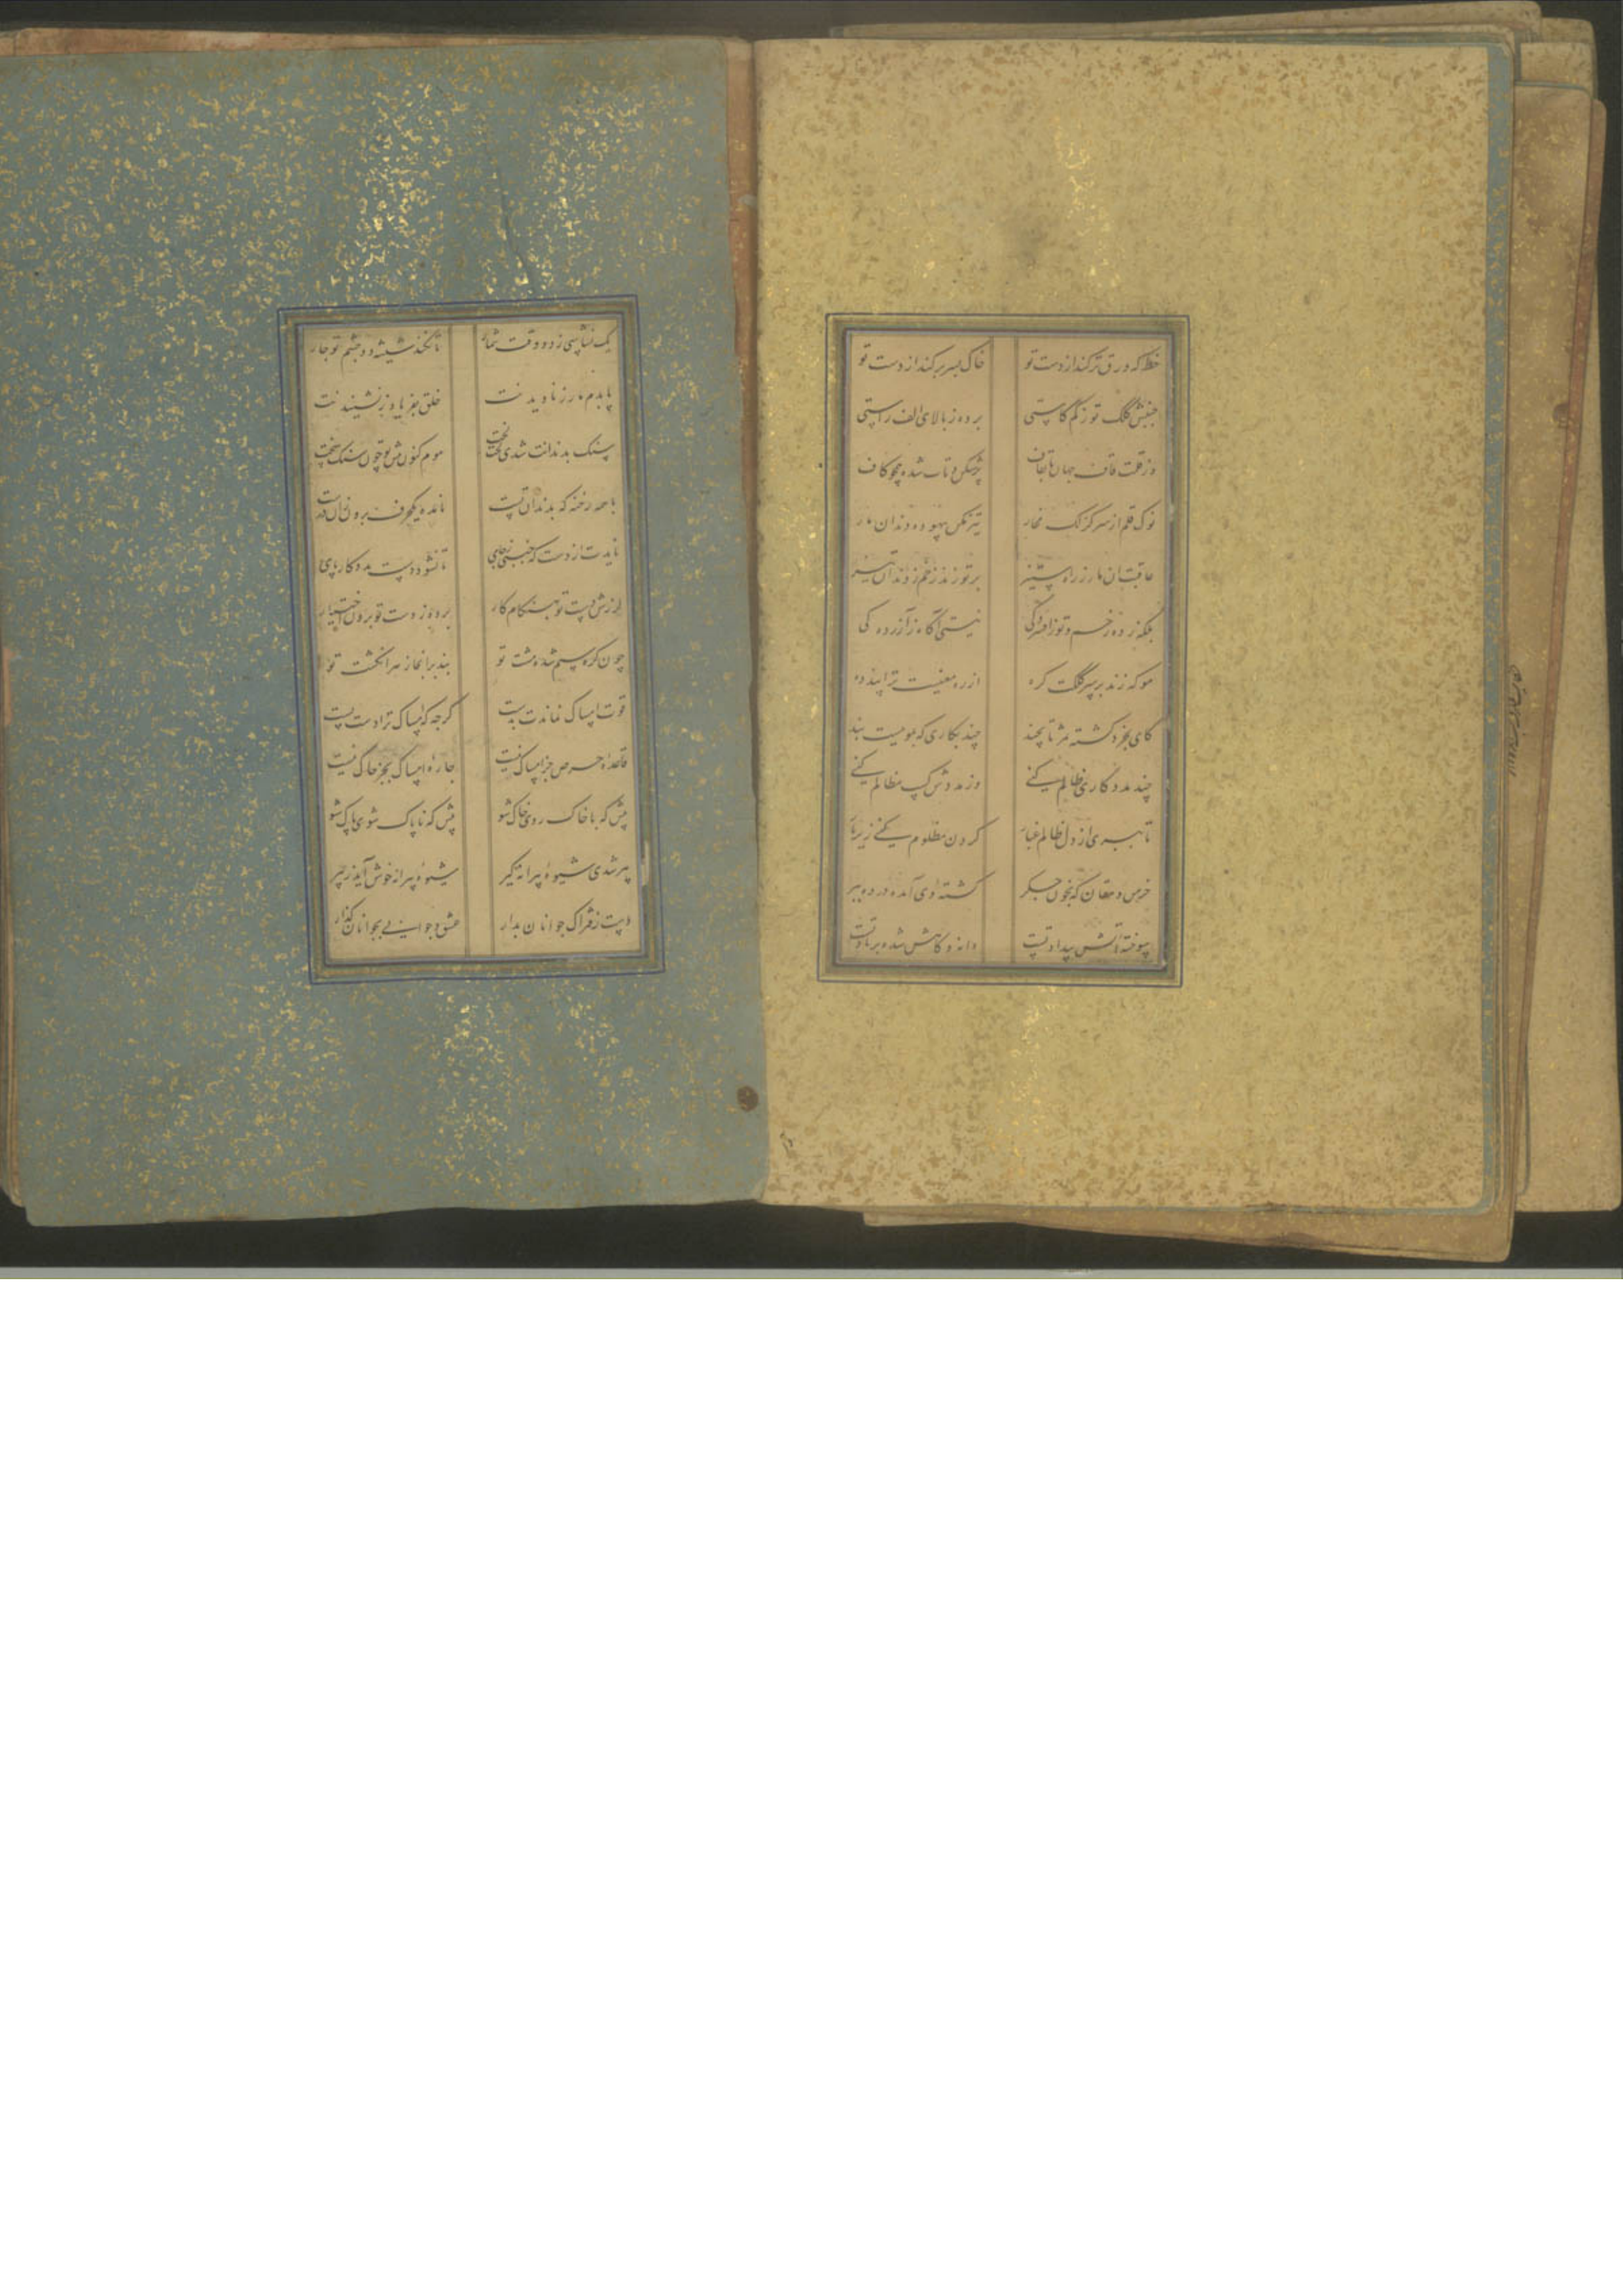 خط که ورق ترکند از دست تو خاک بسر برکند از دست تو
جنبش کلک تو ز کم کاستی برده ز بالای الف راستی
وز قلمت قاف جهان تا بقاف پر شکن و تاب شده همچو کاف
نوک قلم از سر کزلک مخار تیز مکن بیهوده دندان مار
عاقبت آن مار ز راه ستیز بر تو زند زخم ز دندان تیز
بلکه زده زخم و تو ز افسردگی نیستی آگاه ز آزردگی
مو که زند بر سر کلکت گره از ره معنیست ترا پند ده
کای بخرد گشته مثل تا بچند چند بکاری که بمویست بند
چند مددکاری ظالم کنی وز مددش کسب مظالم کنی
تا ببری از دل ظالم غبار گردن مظلوم کنی زیر بار
خرمن دهقان که بخون جگر کشته وی آمده در ده ببر
سوخته آتش بیداد تست دانه و کاهش شده بر باد تست
یک نشناسی ز دو وقت شمار تا نکند شیشه دو چشم تو چار
پا بدم مار ز نادیدنت خلق بفریاد ز نشنیدنت
سنگ بدندانت شدی لخت لخت موم کنون پیش تو چون سنگ سخت
با همه رخنه که بدندان تست مانده یکحرف برون زان
نایدت از دست که جنبی ز جای تا نشود دست مددکار پای
لرزش دست تو بهنگام کار برده ز دست تو برون اختیار
چون گره سیم شده مشت تو بند سر انگشت تو
قوت امساک نماندت بدست گرچه که امساک ترا دست بست
قاعده حرص جز امساک نیست چاره امساک بجز خاک نیست
پیش که با خاک روی خاک شو پیش که ناپاک شوی پاک شو
پیر شدی شیوه پیرانه گیر شیوه پیرانه خوش آید ز پیر
دست ز فتراک جوانان بدار عشق و جوانی بجوانان گذار